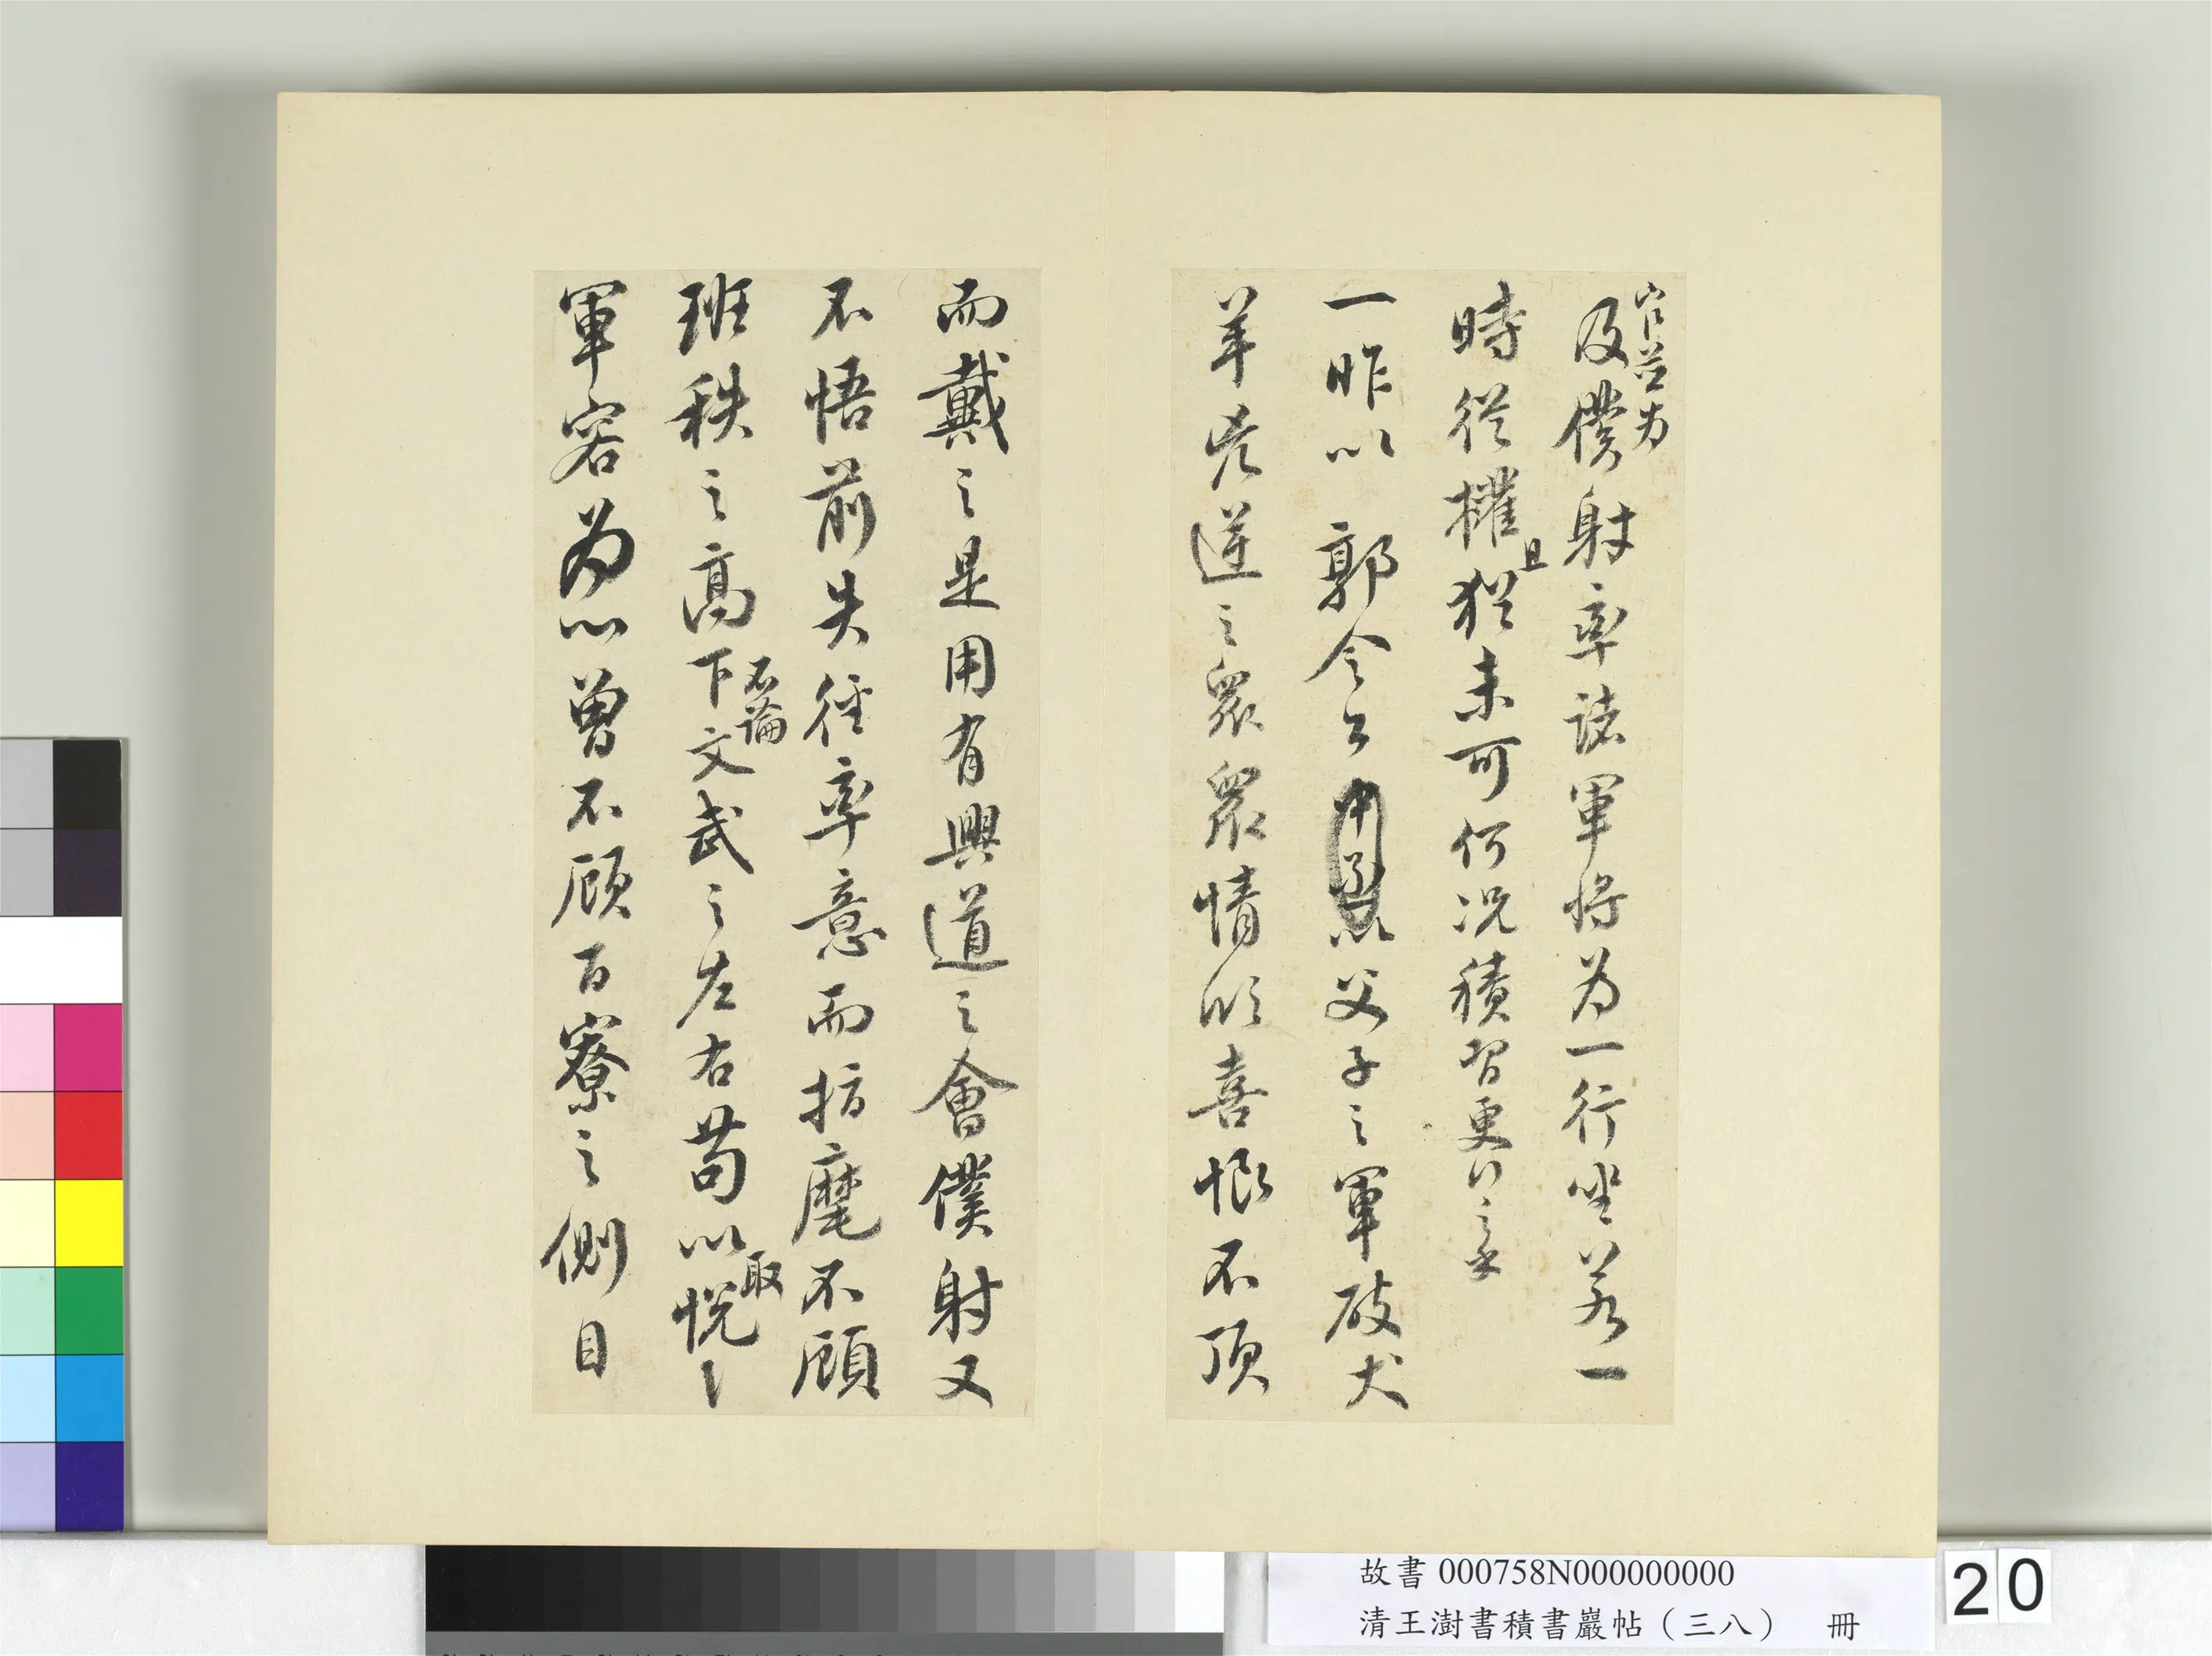 官並为
及僕射率諸軍將为一行坐若一
時從權且猶未可何况積習更行之乎
一昨以郭令公以父子之軍破犬
羊兇逆之眾眾情欣喜恨不頂
而戴之是用有興道之會僕射又
不悟前失徑率意而指麾不顧
班秩之高下不論文武之左右苟以取悅
軍容为心曾不顧百寮之側目
故書 000758N000000000
清王澍書積書巖帖（三八） 冊
20